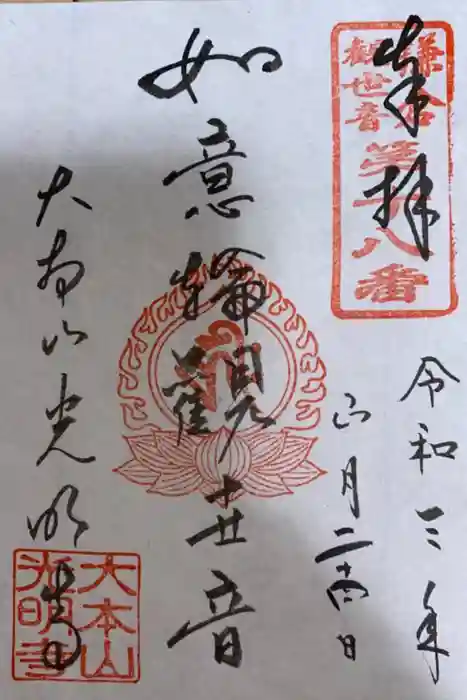 奉拝
鎌倉
観世音
第十八番
令和三年
月二十四日
如意輪觀世音
大本山光明寺
大本山
光明寺